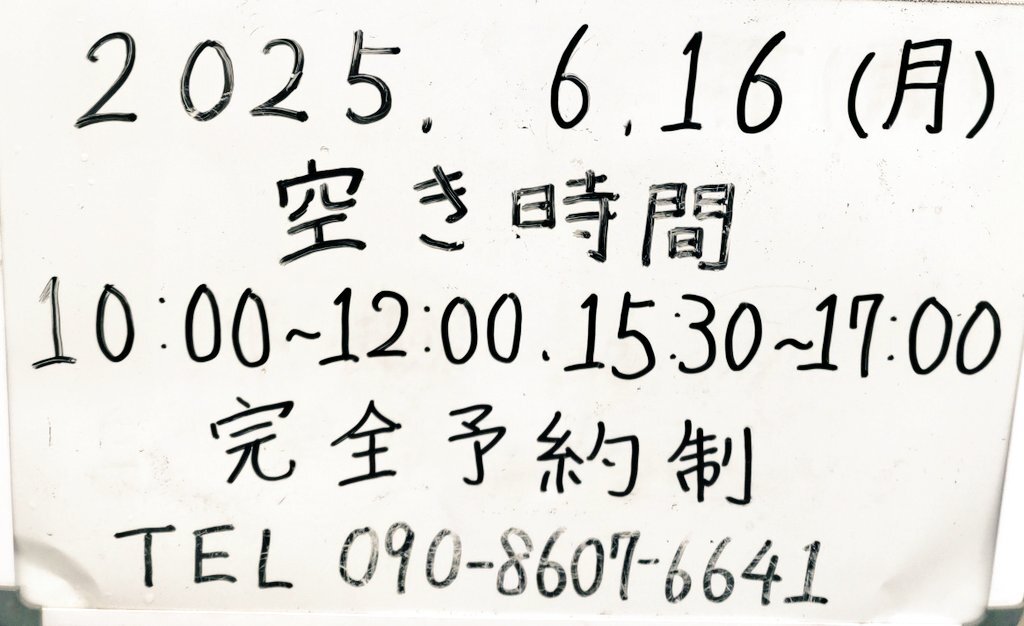 2025. 6.16 (月)
空き時間
10:00~12:00.15:30~17:00
完全予約制
TEL 090-8607-6641